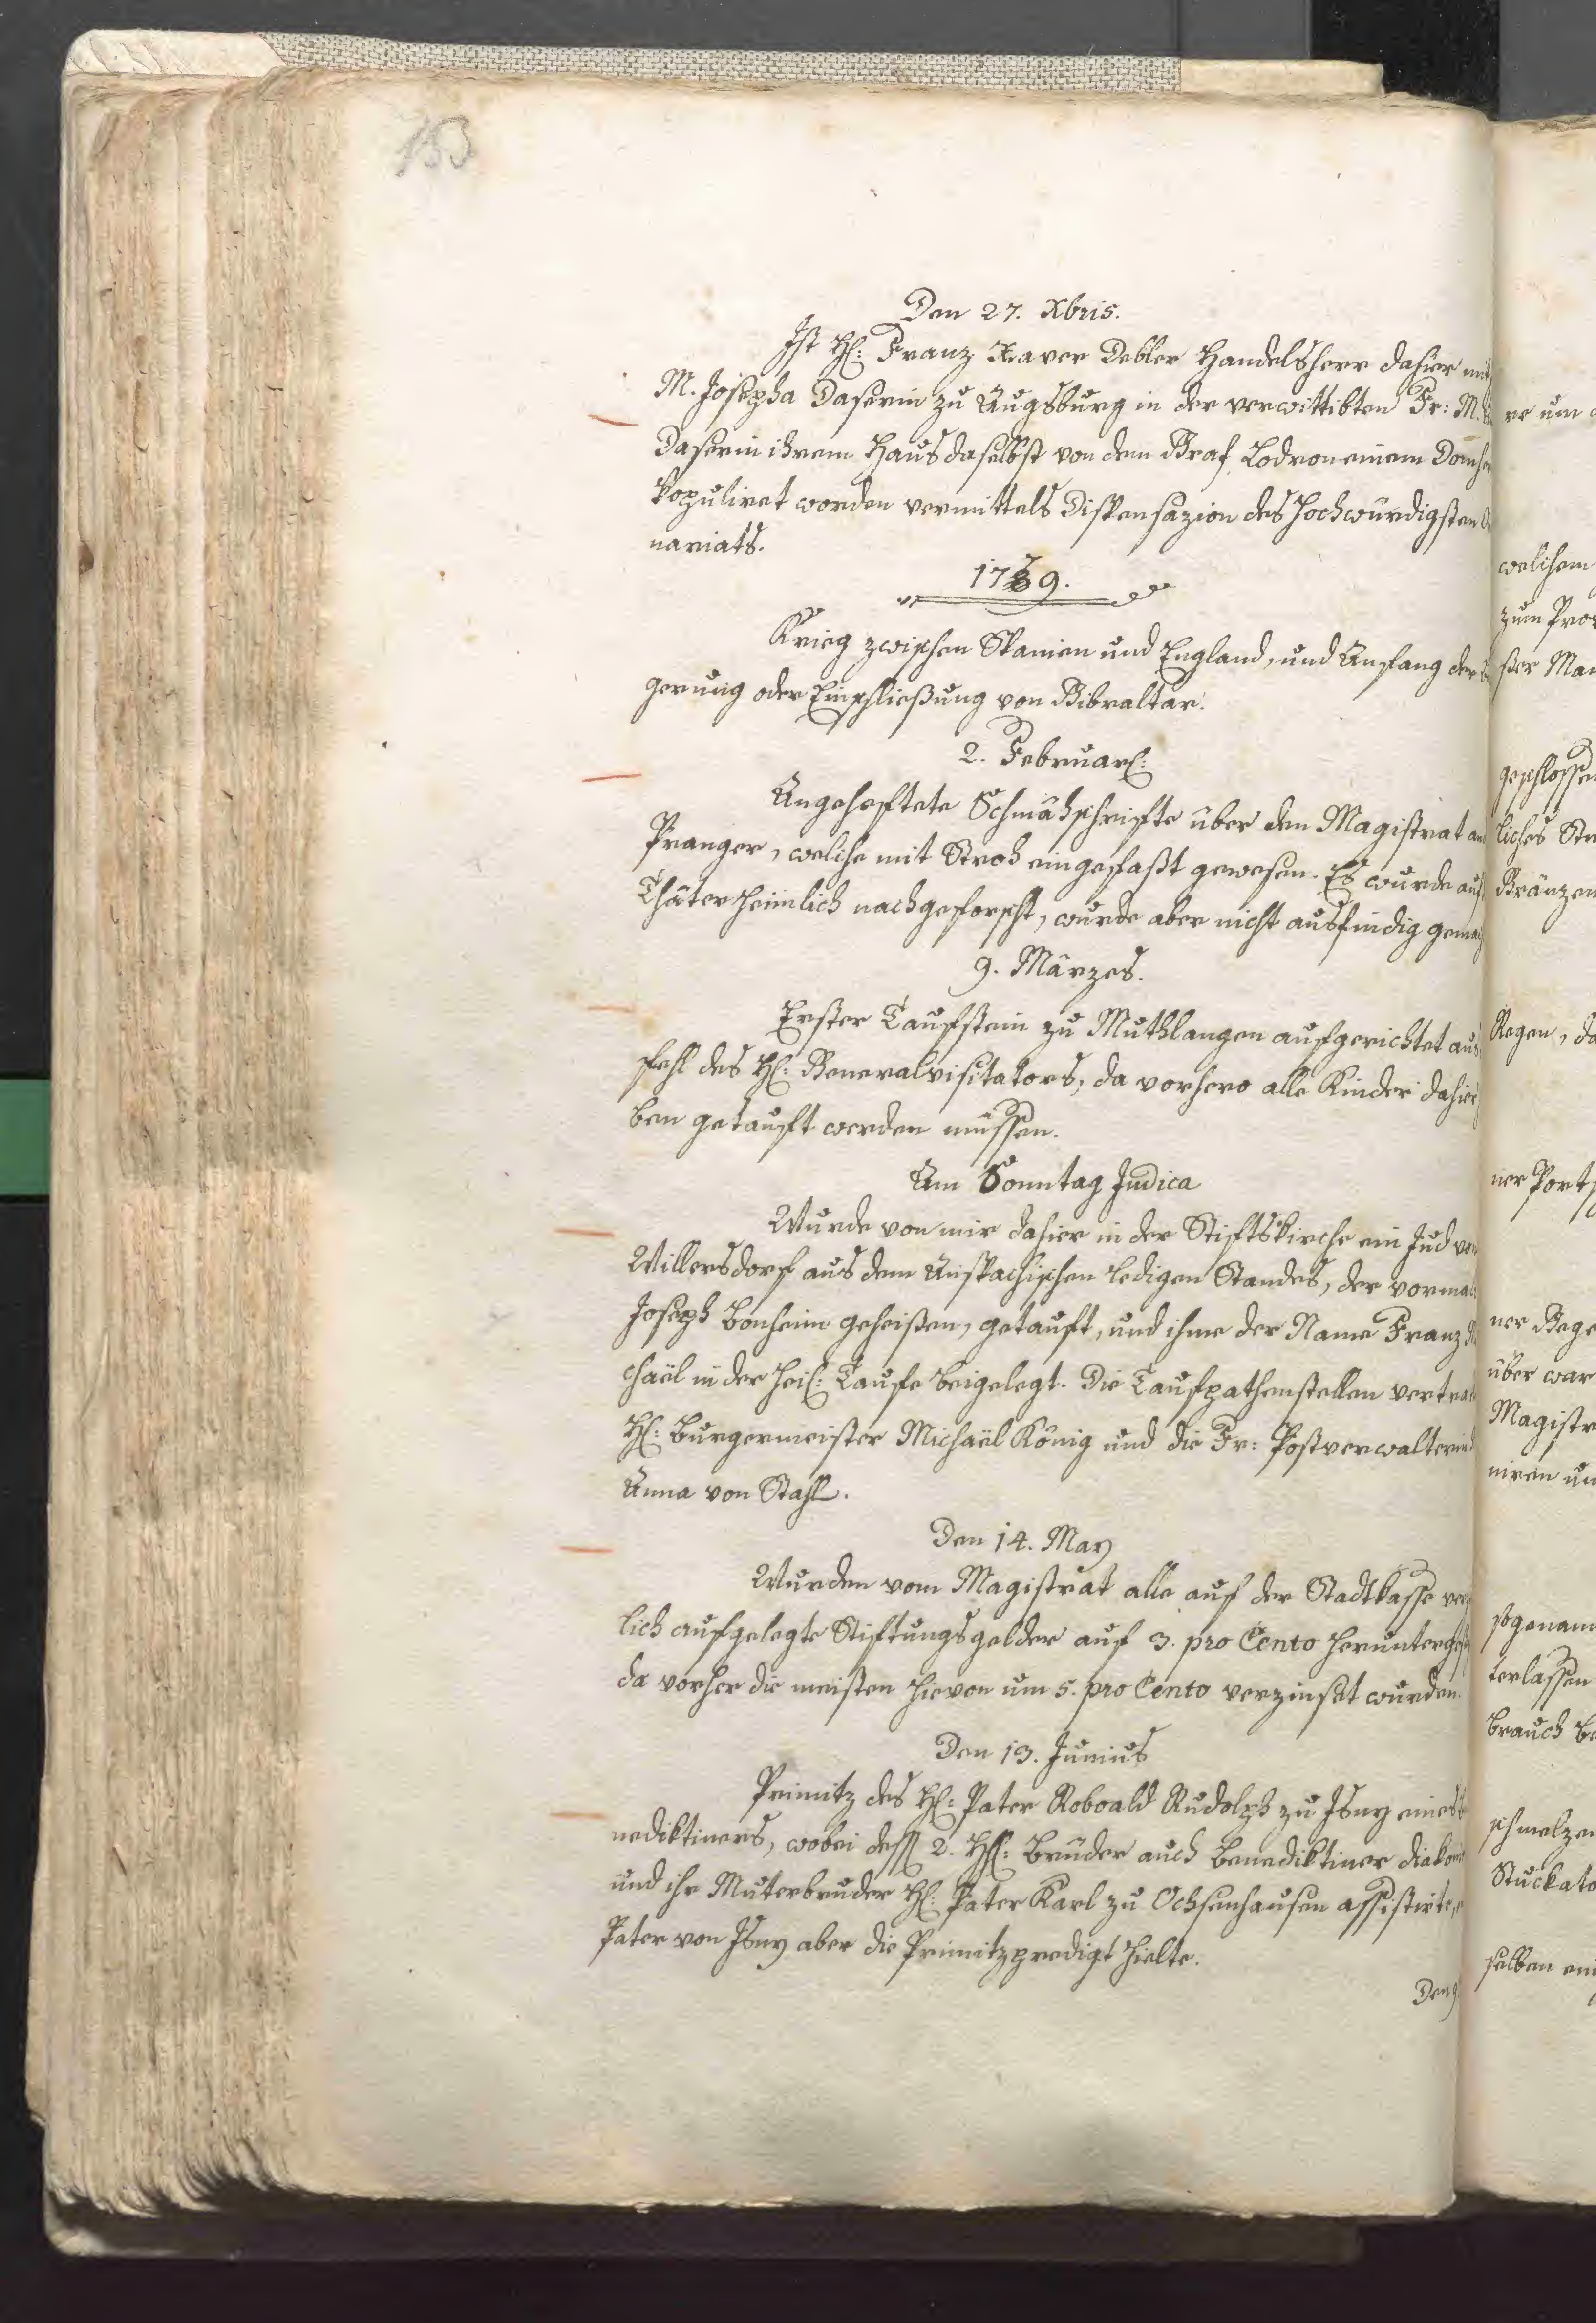 753
Den 27. Xbris.
Ist H: Franz Xaver Debler Handelsherr dahier mit
M. Josepha Daserin zu Augsburg in der verwittibten Fr: M.
Daserin ihrem Haus daselbst von dem Graf Lodron einem
kopuliret worden vermittels Dispensazion des Hochwürdigsten
nariats.
1779.
Krieg zwischen Spanien und England, und Anfang der
gerung oder Einschließung von Gibraltar.
2. Februar:
Angeheftete Schmähschrifte über den Magistrat am
Pranger, welche mit Stroh eingefaßt gewesen. Es wurde auf
Thäter heimlich nachgeforscht, wurde aber nicht ausfindig
9. Märzes.
Erster Taufstein zu Muthlangen aufgerichtet aus
fehl des H: Generalvisitators, da vorhero alle Kinder dahier
ben getauft werden müssen.
Am Sonntag Judica
Wurde von mir dahier in der Stiftskirche ein Jud von
Willersdorf aus dem Anspachischen ledigen Standes, der
Joseph Bonheim geheißen, getauft, und ihme der Name Franz
chaël in der Heil: Taufe beigelegt. Die Taufpathenstellen
H: Burgermeister Michaël König und die Fr: Postverwalterin
Anna von Stahl.
Den 14. May
Wurden vom Magistrat alle auf der Stadtkasse
lich aufgelegte Stiftungsgelder auf 3. pro Cento
da vorher die meisten hievon um 5. pro Cento verzinset wurden.
Den 13. Junius
Primitz des H: Pater Roboald Rudolph zu Isny eines
nediktiners, wobei dess 2. HH: Brüder auch Benediktiner
und ihr Muterbruder H: Pater Karl zu Ochsenhausen assistirte,
Pater von Isny aber die Primitzpredigt hielte.
Den
re um
welchem
zum
ster
geschlossen
liches
Gränzen
Regen, da
ner
ner
über war
Magistr
niren un
sogenam
terlassen
brauch
schmelzen
Stuckato
selben